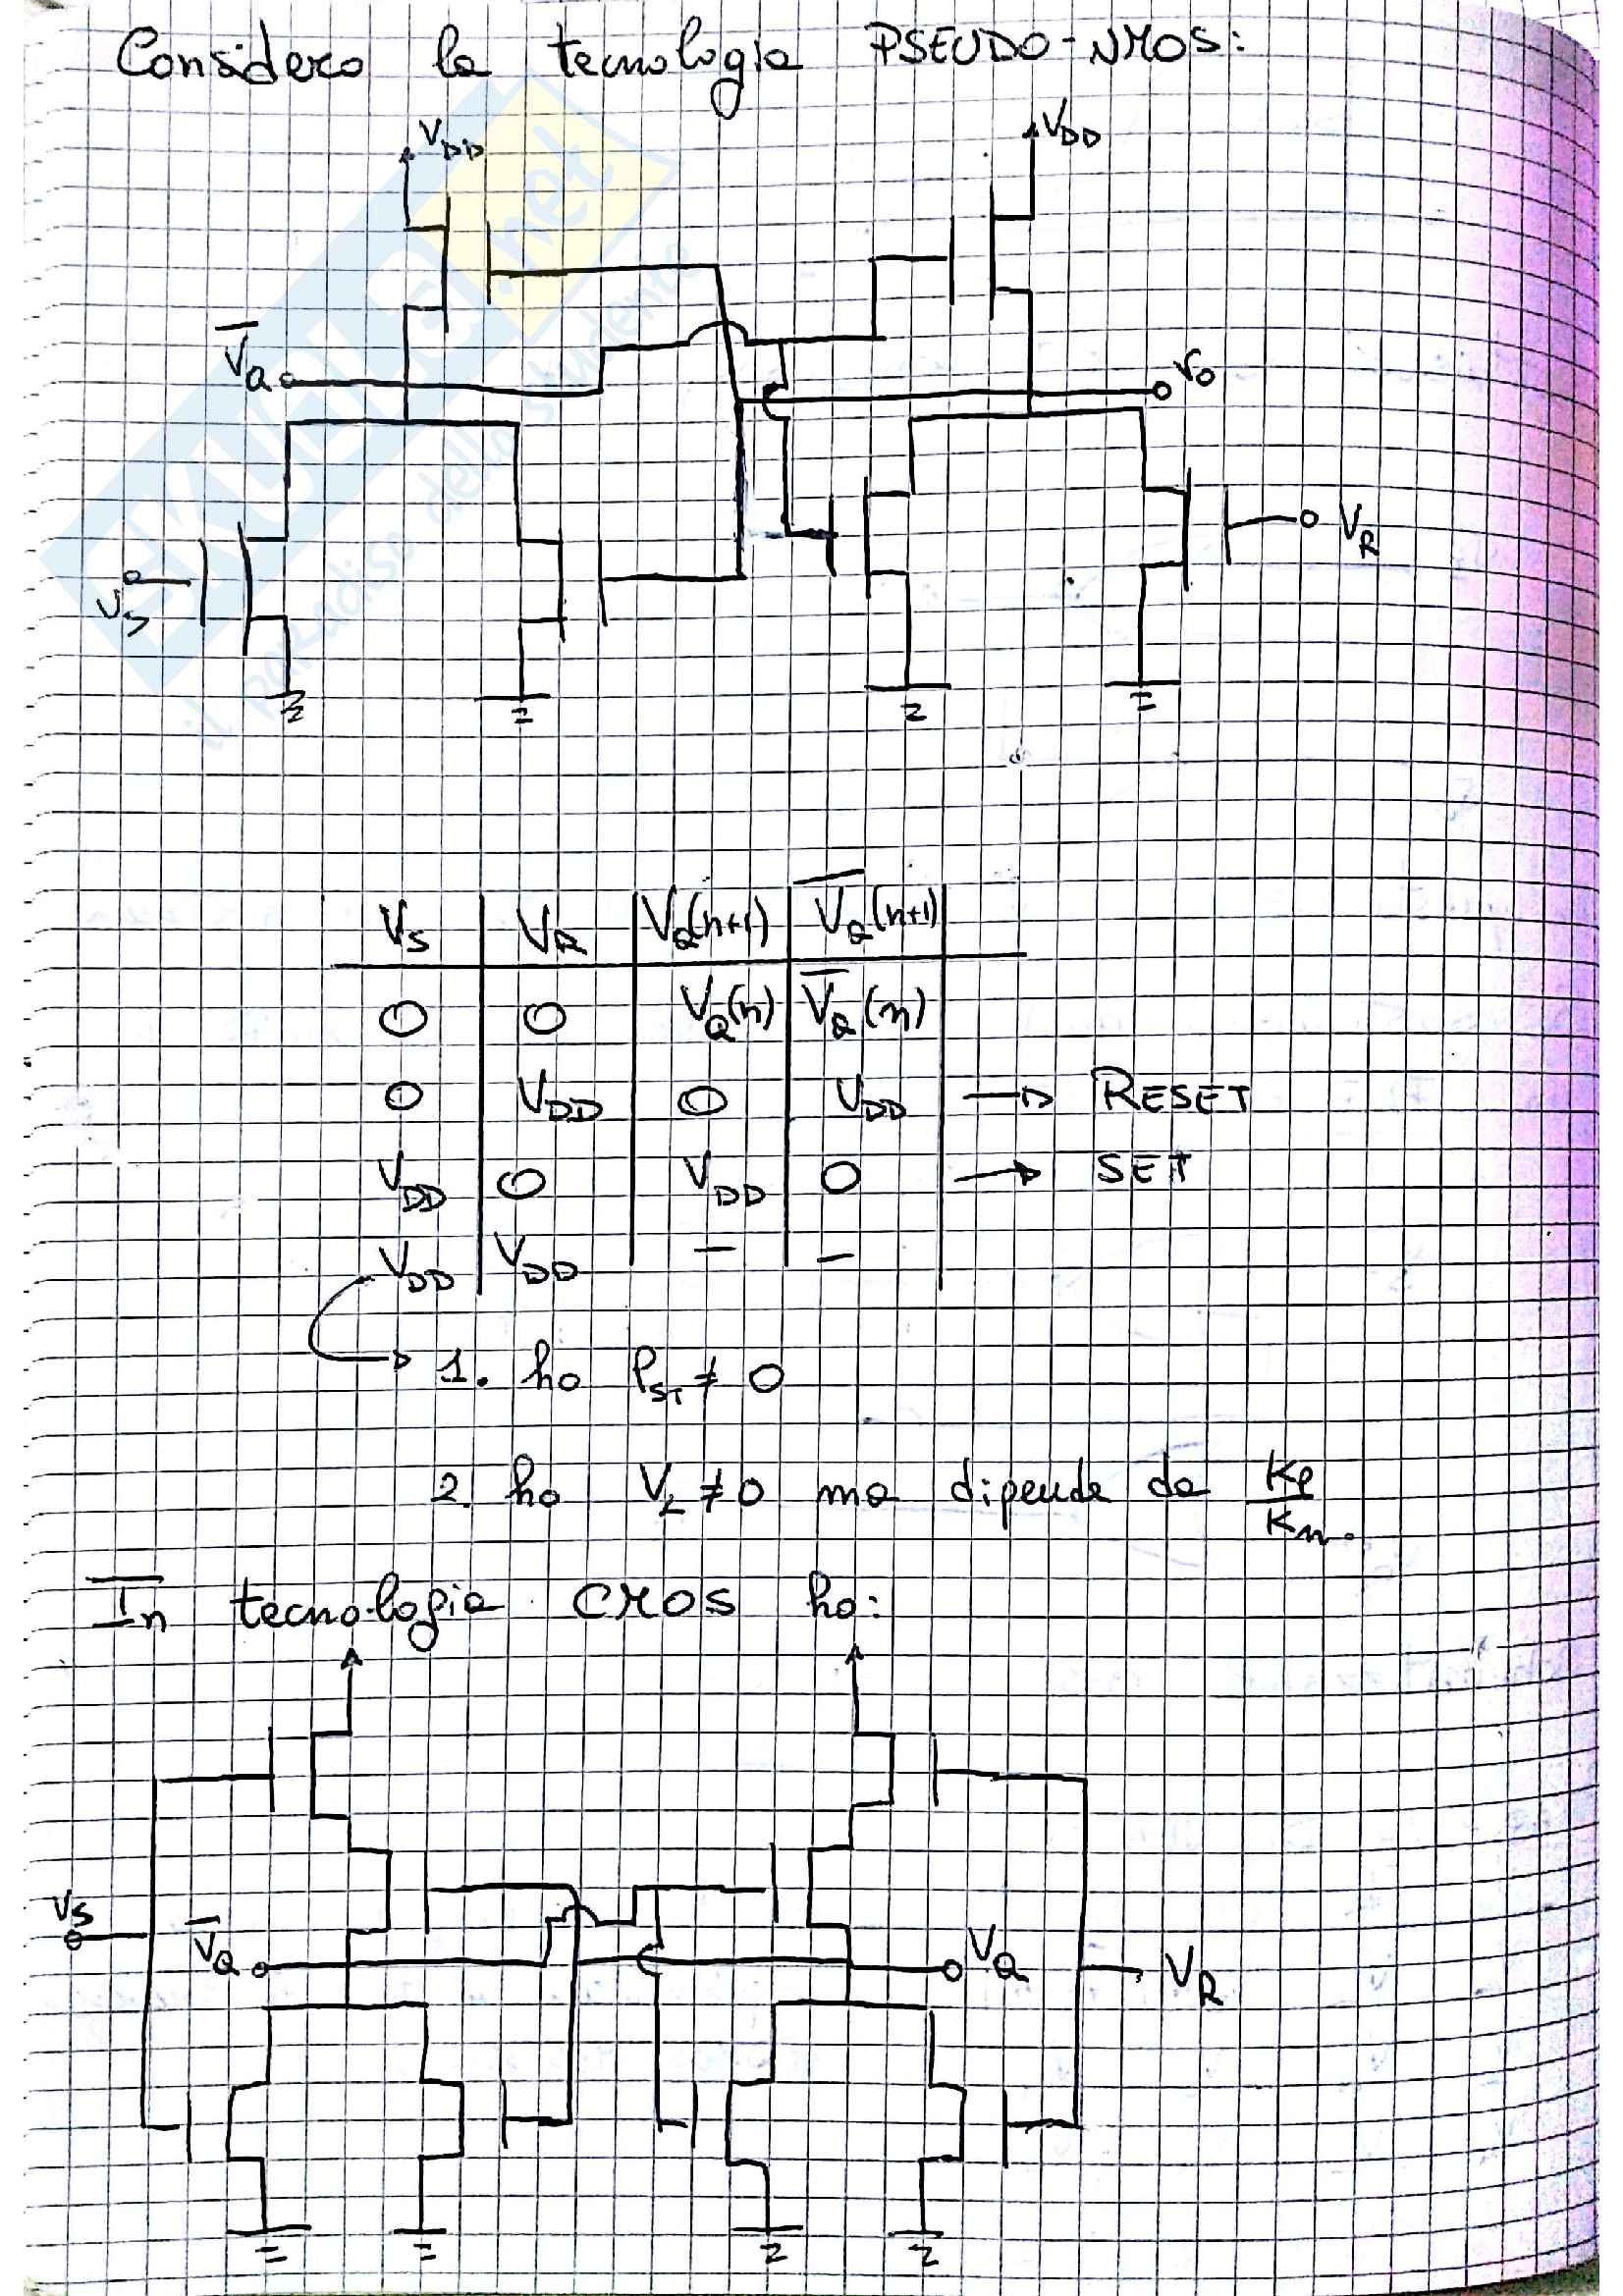 Considero la tecnologia PSEUDO-NMOS:
V_DD V_DD
V̅_Q V_O
V_S V_R
V_S V_R V_Q(n+1) V̅_Q(n+1)
0 0 V_Q(n) V̅_Q(n)
0 V_DD 0 V_DD → RESET
V_DD 0 V_DD 0 → SET
V_DD V_DD - -
1. ho P_ST ≠ 0
2. ho V_L ≠ 0 ma dipende da Kp/Kn.
In tecnologia CMOS ho:
V_S V̅_Q V_Q V_R
SKUOLA.net
il paradiso dello studente